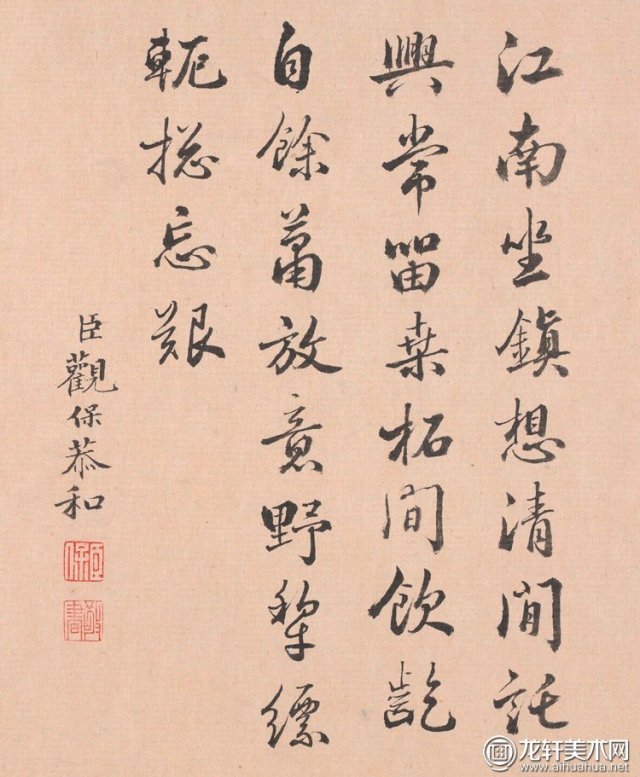 江南坐鎮想清閒託
興常留桑柘間飲齕
自餘蕭放意野犂縹
軛揔忘艱
臣觀保恭和
臣保
敬書
龙轩美术网
www.aihuahua.net